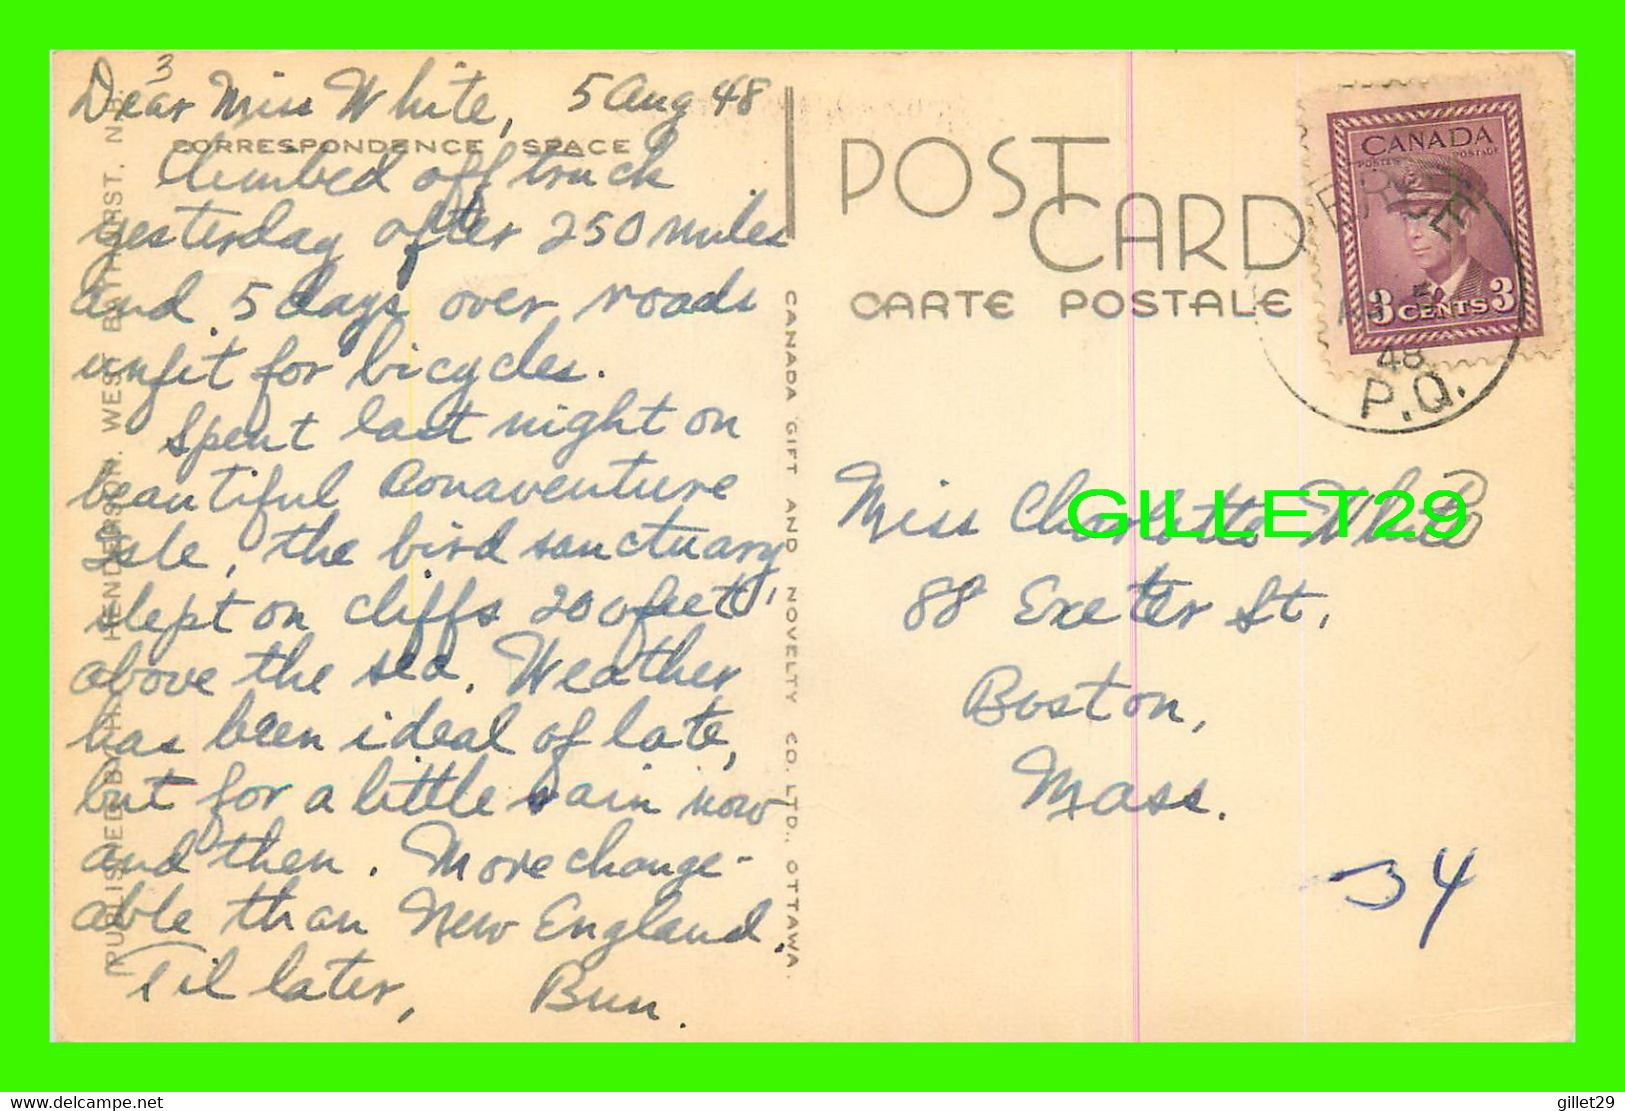 3
Dear Miss White, 5 Aug 48
CORRESPONDENCE SPACE
Climbed off truck
yesterday after 250 miles
and 5 days over roads
unfit for bicycles.
Spent last night on
beautiful Bonaventure
Isle, the bird sanctuary,
slept on cliffs 200 feet
above the sea. Weather
has been ideal of late,
but for a little rain now
and then. More change-
able than New England.
Til later, Bun.
PUBLISHED BY HENDERSON, WEST BATHURST, N.B.
CANADA GIFT AND NOVELTY CO. LTD., OTTAWA.
POST
CARD
CARTE POSTALE
CANADA
POSTES POSTAGE
3 CENTS 3
PERCE
48
P.Q.
Miss Charlotte White
GILLET29
88 Exeter St,
Boston,
Mass.
34
www.delcampe.net
gillet29